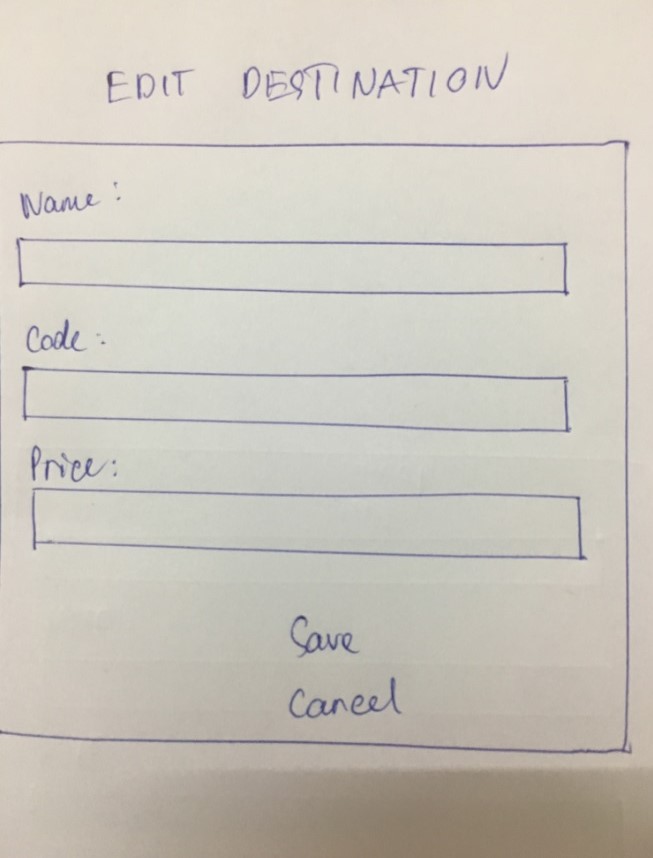 EDIT DESTINATION
Name:
Code:
Price:
Save
Cancel